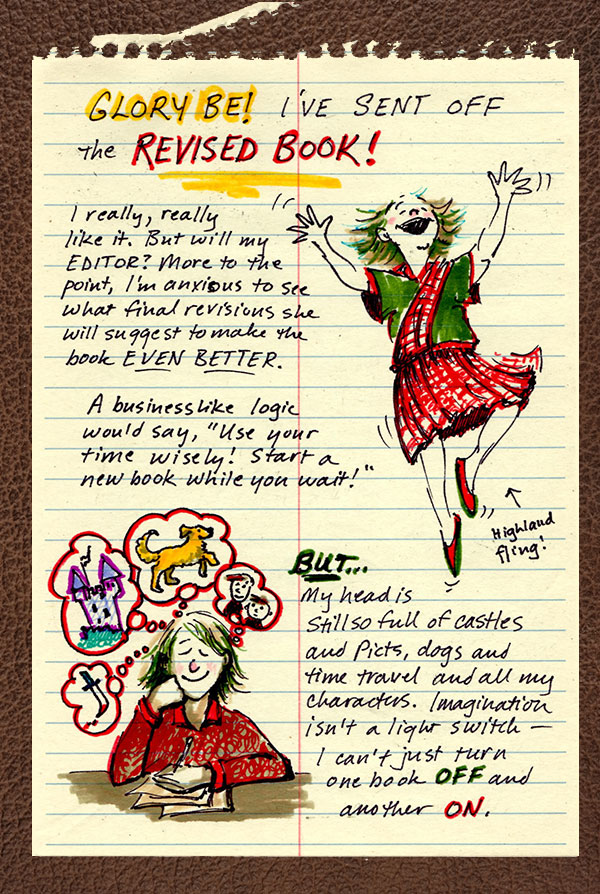 GLORY BE! I'VE SENT OFF
the REVISED BOOK!
I really, really
like it. But will my
EDITOR? More to the
point, I'm anxious to see
what final revisions she
will suggest to make the
book EVEN BETTER.
A businesslike logic
would say, "Use your
time wisely! Start a
new book while you wait!"
Highland
fling!
BUT...
My head is
still so full of castles
and Picts, dogs and
time travel and all my
characters. Imagination
isn't a light switch —
I can't just turn
one book OFF and
another ON.